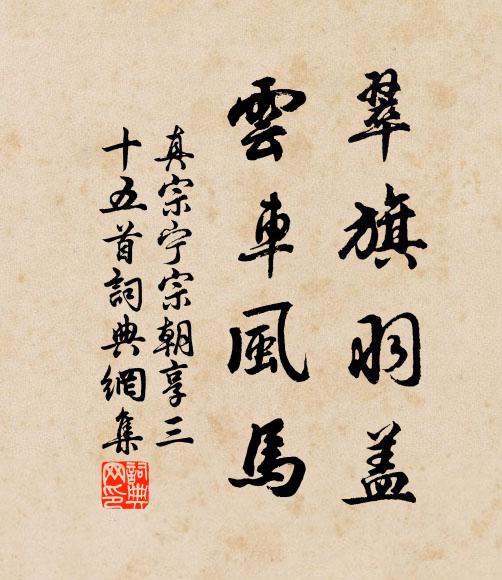 翠旗羽盖
雲車風馬
真宗宁宗朝享三
十五首詞典網集
詞典
网印